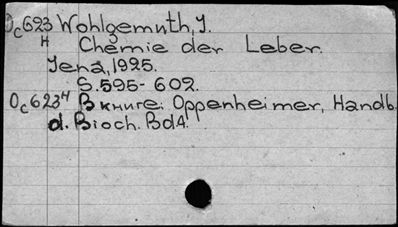 Oc623 Wohlgemuth, J.
H Chemie der Leber.
Jena, 1925.
S. 595-602.
Oc623H В книге: Oppenheimer, Handb.
d. Bioch. Bd4.